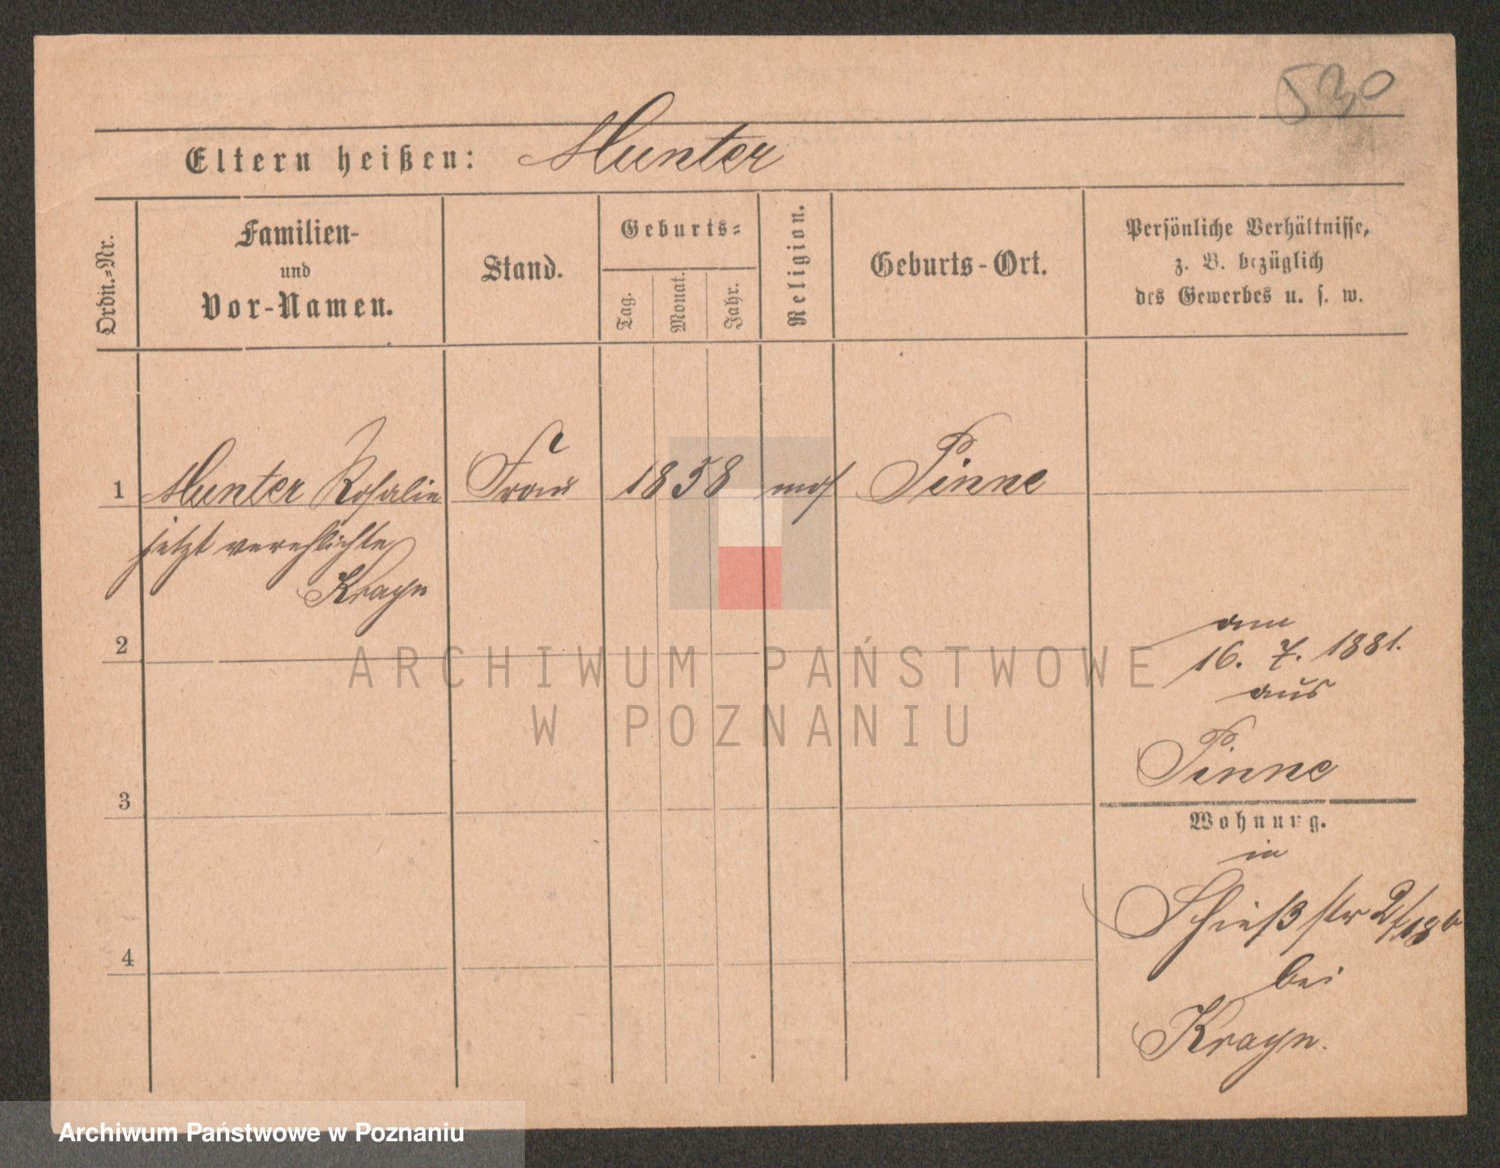 530
Eltern heißen: Munter
Ordn.-Nr.
Familien-
und
Vor-Namen.
Stand.
Geburts-
Tag.
Monat.
Jahr.
Religion.
Geburts-Ort.
Persönliche Verhältnisse,
z. B. bezüglich
des Gewerbes u. s. w.
1 Munter Rosalie Frau 1858 mos Pinne
jetzt verehlichte
Krayn
2
3
4
am
16. 7. 1881.
aus
Pinne
Wohnung.
in
Schießstr
bei
Krayn.
ARCHIWUM PAŃSTWOWE
W POZNANIU
Archiwum Państwowe w Poznaniu